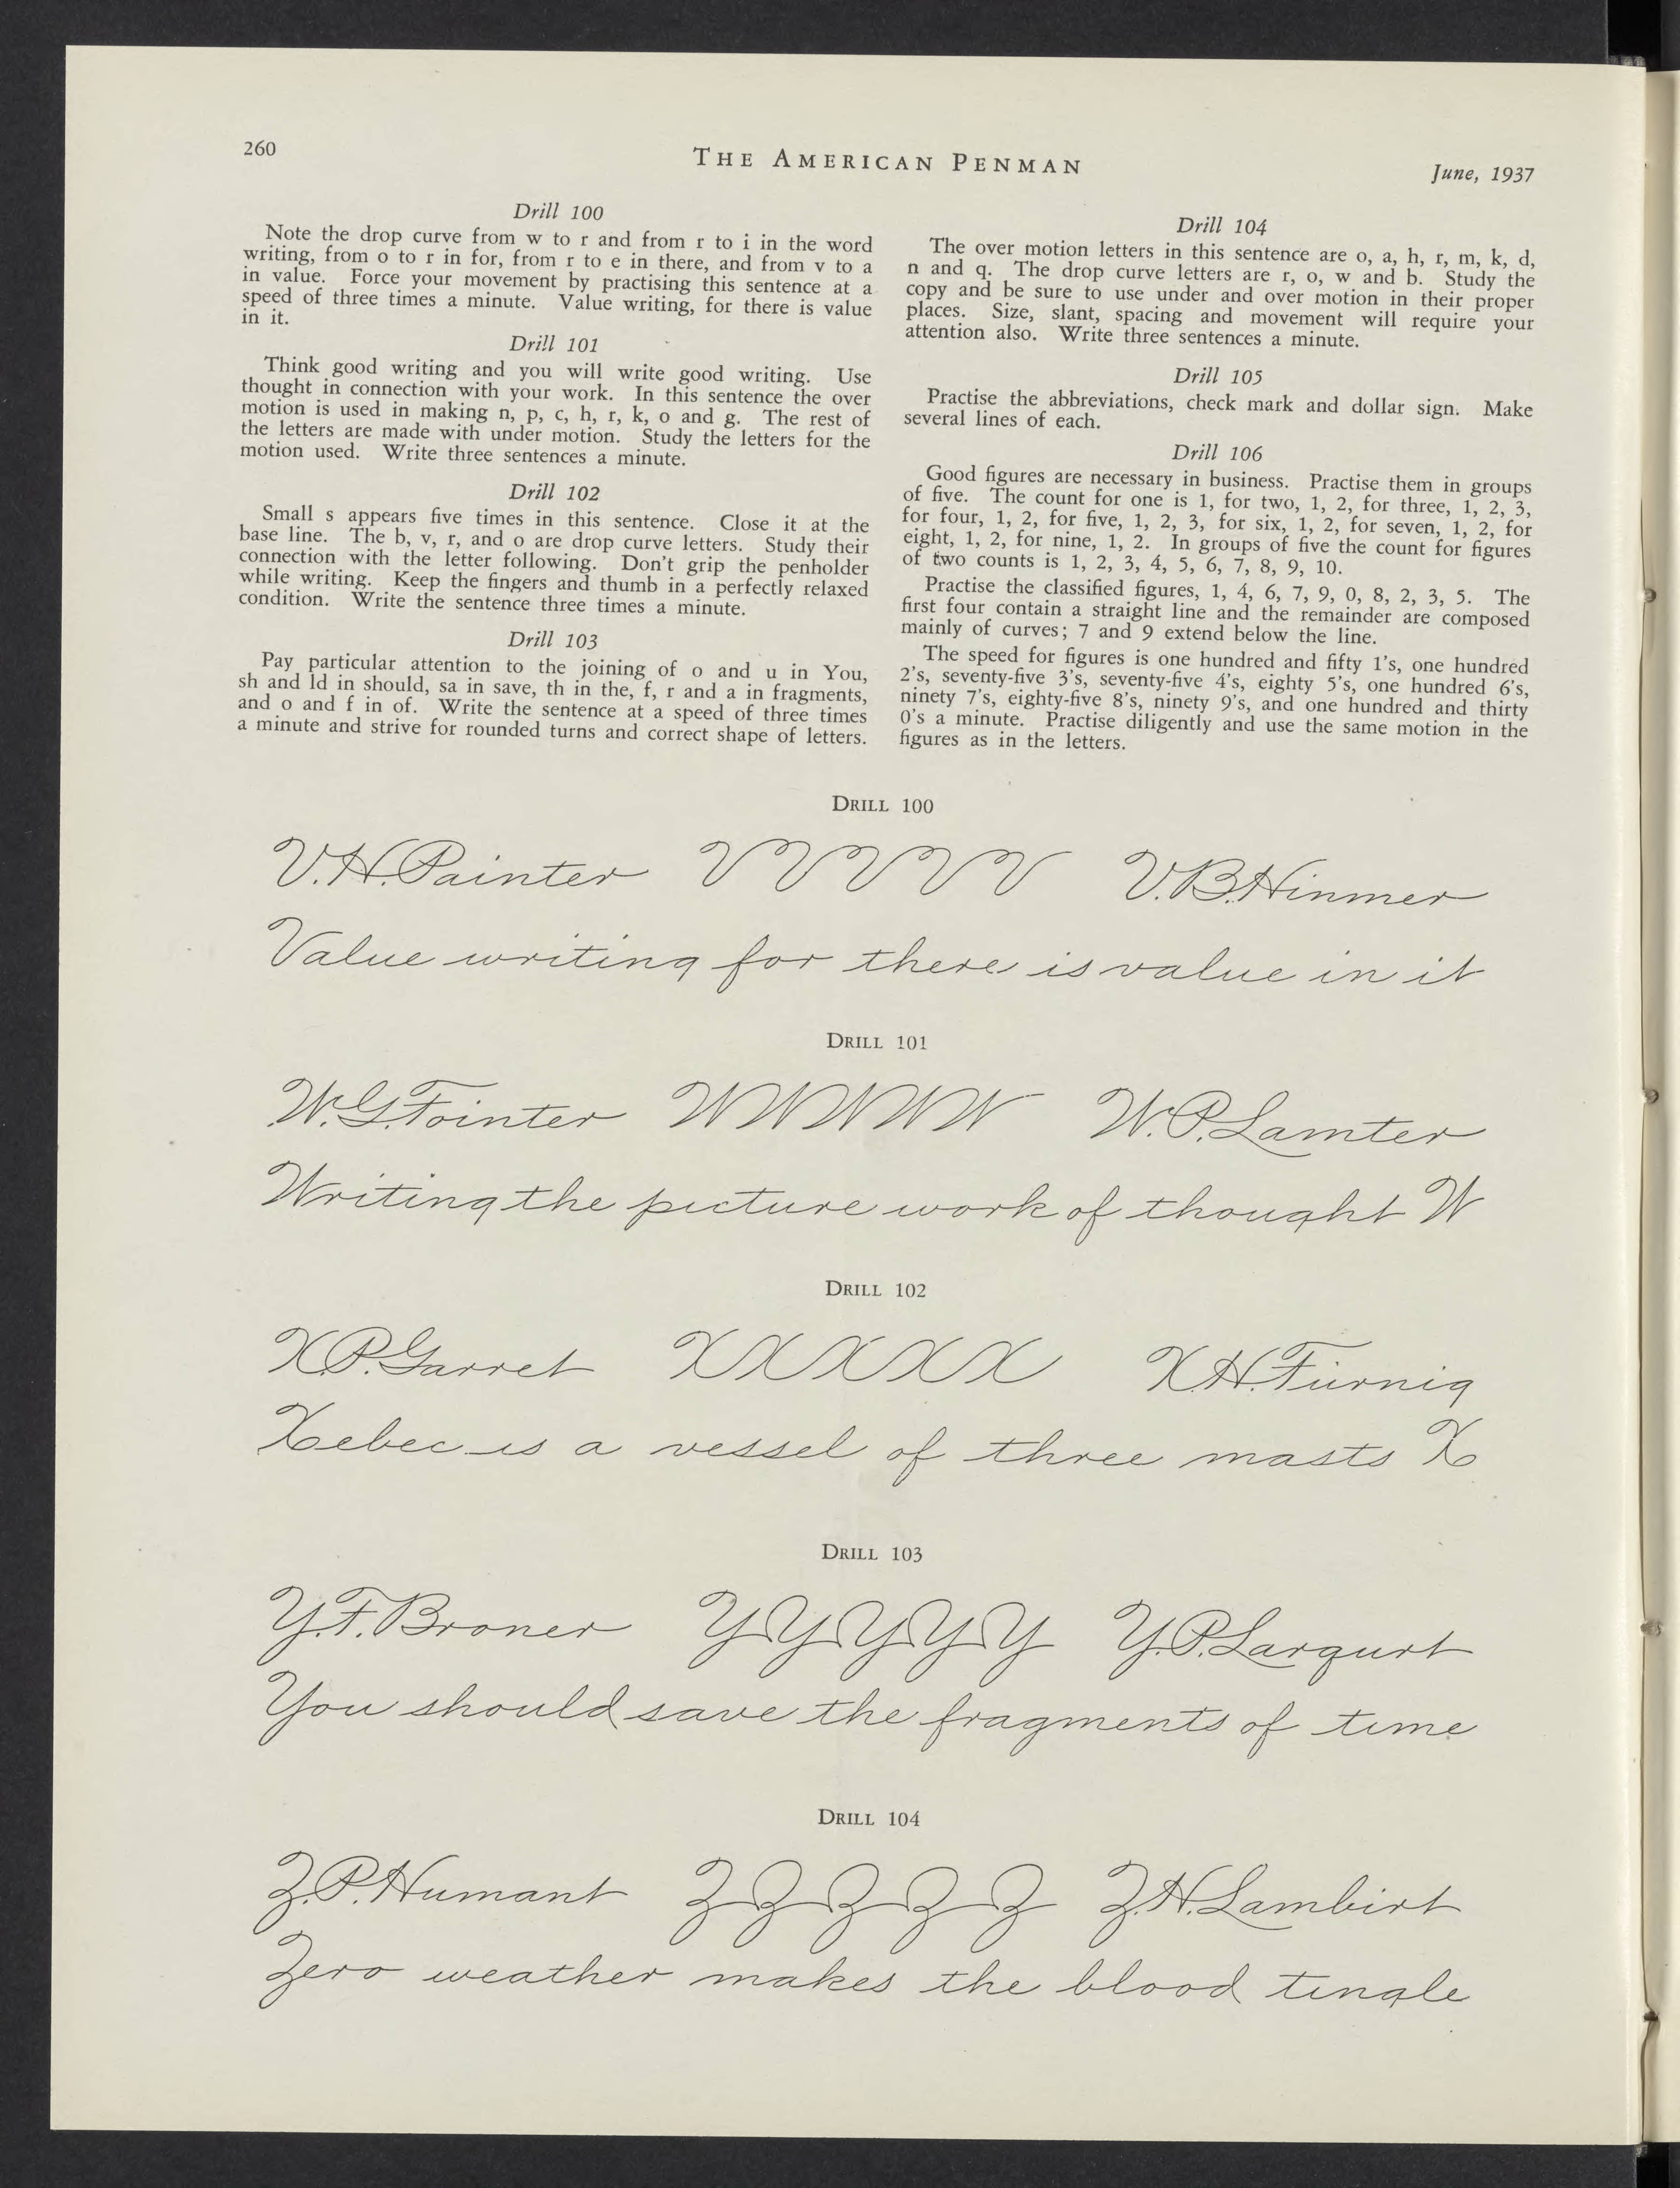 260
THE AMERICAN PENMAN
June, 1937
Drill 100
Note the drop curve from w to r and from r to i in the word
writing, from o to r in for, from r to e in there, and from v to a
in value. Force your movement by practising this sentence at a
speed of three times a minute. Value writing, for there is value
in it.
Drill 101
Think good writing and you will write good writing. Use
thought in connection with your work. In this sentence the over
motion is used in making n, p, c, h, r, k, o and g. The rest of
the letters are made with under motion. Study the letters for the
motion used. Write three sentences a minute.
Drill 102
Small s appears five times in this sentence. Close it at the
base line. The b, v, r, and o are drop curve letters. Study their
connection with the letter following. Don't grip the penholder
while writing. Keep the fingers and thumb in a perfectly relaxed
condition. Write the sentence three times a minute.
Drill 103
Pay particular attention to the joining of o and u in You,
sh and ld in should, sa in save, th in the, f, r and a in fragments,
and o and f in of. Write the sentence at a speed of three times
a minute and strive for rounded turns and correct shape of letters.
Drill 104
The over motion letters in this sentence are o, a, h, r, m, k, d,
n and q. The drop curve letters are r, o, w and b. Study the
copy and be sure to use under and over motion in their proper
places. Size, slant, spacing and movement will require your
attention also. Write three sentences a minute.
Drill 105
Practise the abbreviations, check mark and dollar sign. Make
several lines of each.
Drill 106
Good figures are necessary in business. Practise them in groups
of five. The count for one is 1, for two, 1, 2, for three, 1, 2, 3,
for four, 1, 2, for five, 1, 2, 3, for six, 1, 2, for seven, 1, 2, for
eight, 1, 2, for nine, 1, 2. In groups of five the count for figures
of two counts is 1, 2, 3, 4, 5, 6, 7, 8, 9, 10.
Practise the classified figures, 1, 4, 6, 7, 9, 0, 8, 2, 3, 5. The
first four contain a straight line and the remainder are composed
mainly of curves; 7 and 9 extend below the line.
The speed for figures is one hundred and fifty 1's, one hundred
2's, seventy-five 3's, seventy-five 4's, eighty 5's, one hundred 6's,
ninety 7's, eighty-five 8's, ninety 9's, and one hundred and thirty
0's a minute. Practise diligently and use the same motion in the
figures as in the letters.
DRILL 100
V. H. Painter V V V V V V. B. Hinmer
Value writing for there is value in it
DRILL 101
W. G. Fointer W W W W W W. P. Lamter
Writing the picture work of thought W
DRILL 102
X. P. Garret X X X X X X. H. Furnig
Xebec is a vessel of three masts X
DRILL 103
Y. F. Broner Y Y Y Y Y Y. P. Largurt
You should save the fragments of time
DRILL 104
Z. P. Humant Z Z Z Z Z Z. H. Lambirt
Zero weather makes the blood tingle